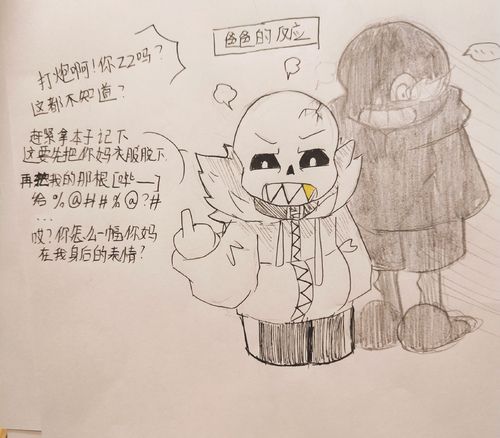 色色的反应
打炮啊！你ZZ吗？
这都不知道？
赶紧拿本子记下
这要先把你妈衣服脱下
再把我的那根[哔—]
给 %@#!#%@?#
...
哎？你怎么一幅你妈
在我身后的表情？
...